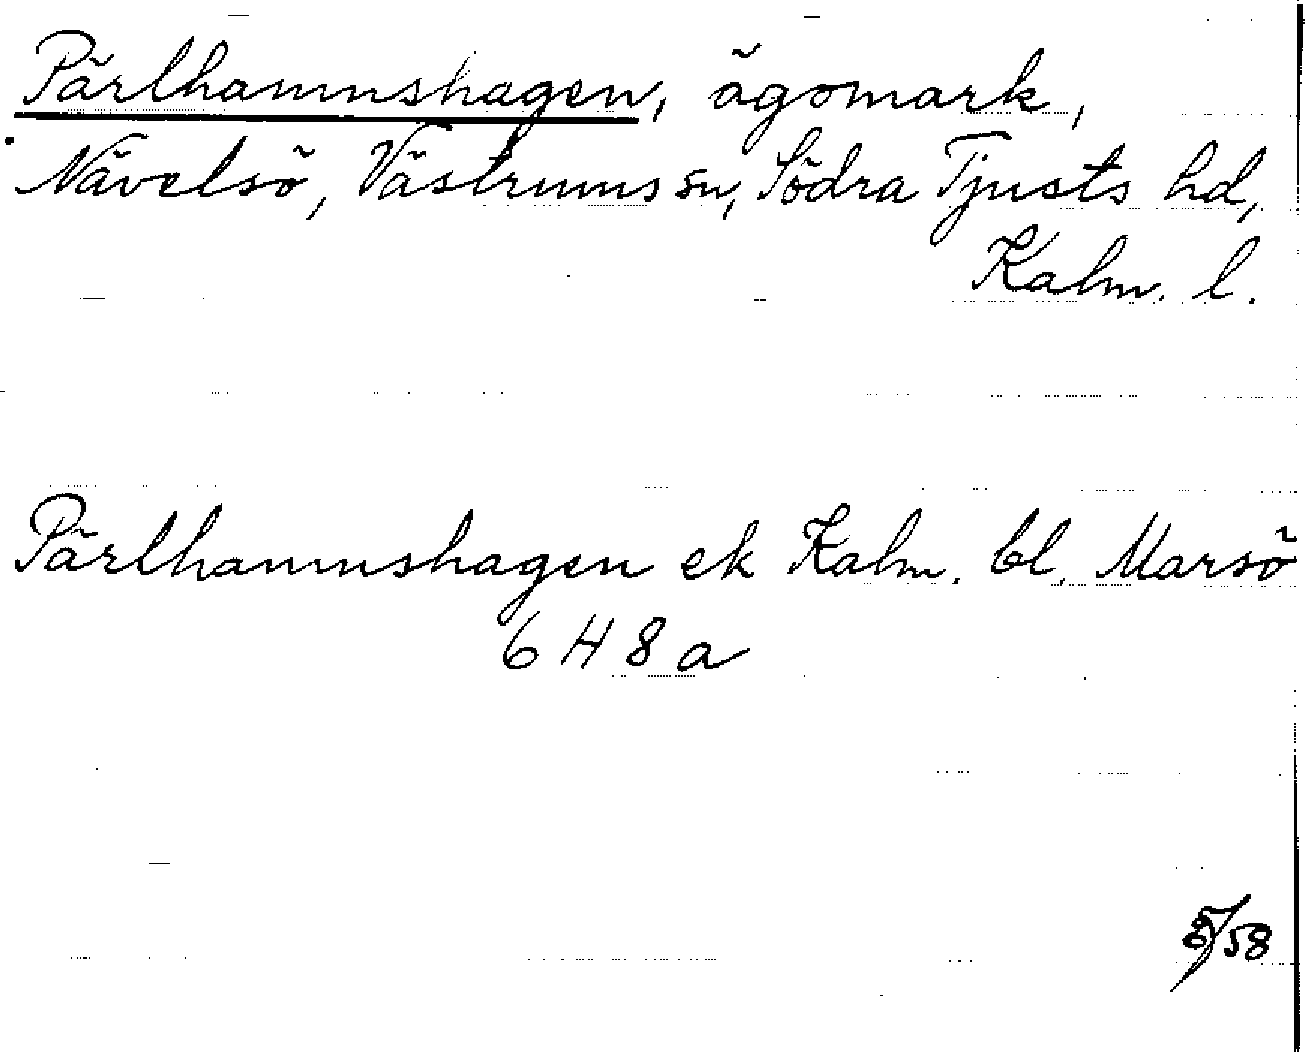 Pärlhamnshagen, ägomark,
Nävelsö, Västrums sn, Södra Tjusts hd,
Kalm. l.
Pärlhamnshagen ek Kalm. bl. Marsö
6 H 8 a
/58